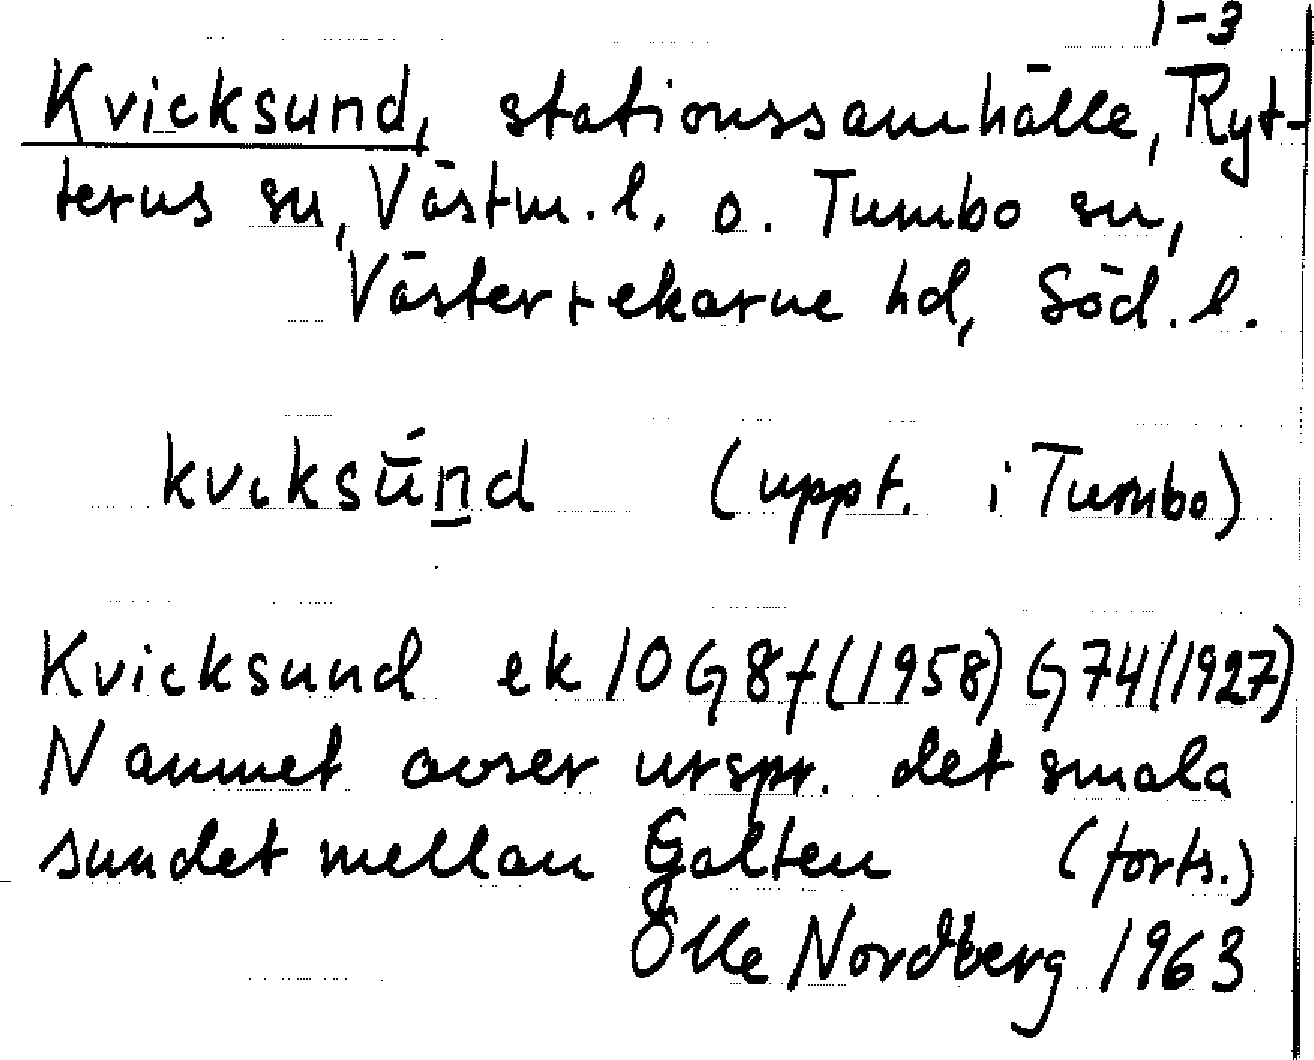 1-3
Kvicksund, stationssamhälle, Ryt-
terns sn, Västm. l. o. Tumbo sn,
Västerrekarne hd, Söd. l.
kvɩksū́n̲d (uppt. i Tumbo)
Kvicksund ek 10G8f(1958) G74(1927)
Namnet avser urspr. det smala
sundet mellan Galten (forts.)
Olle Nordberg 1963